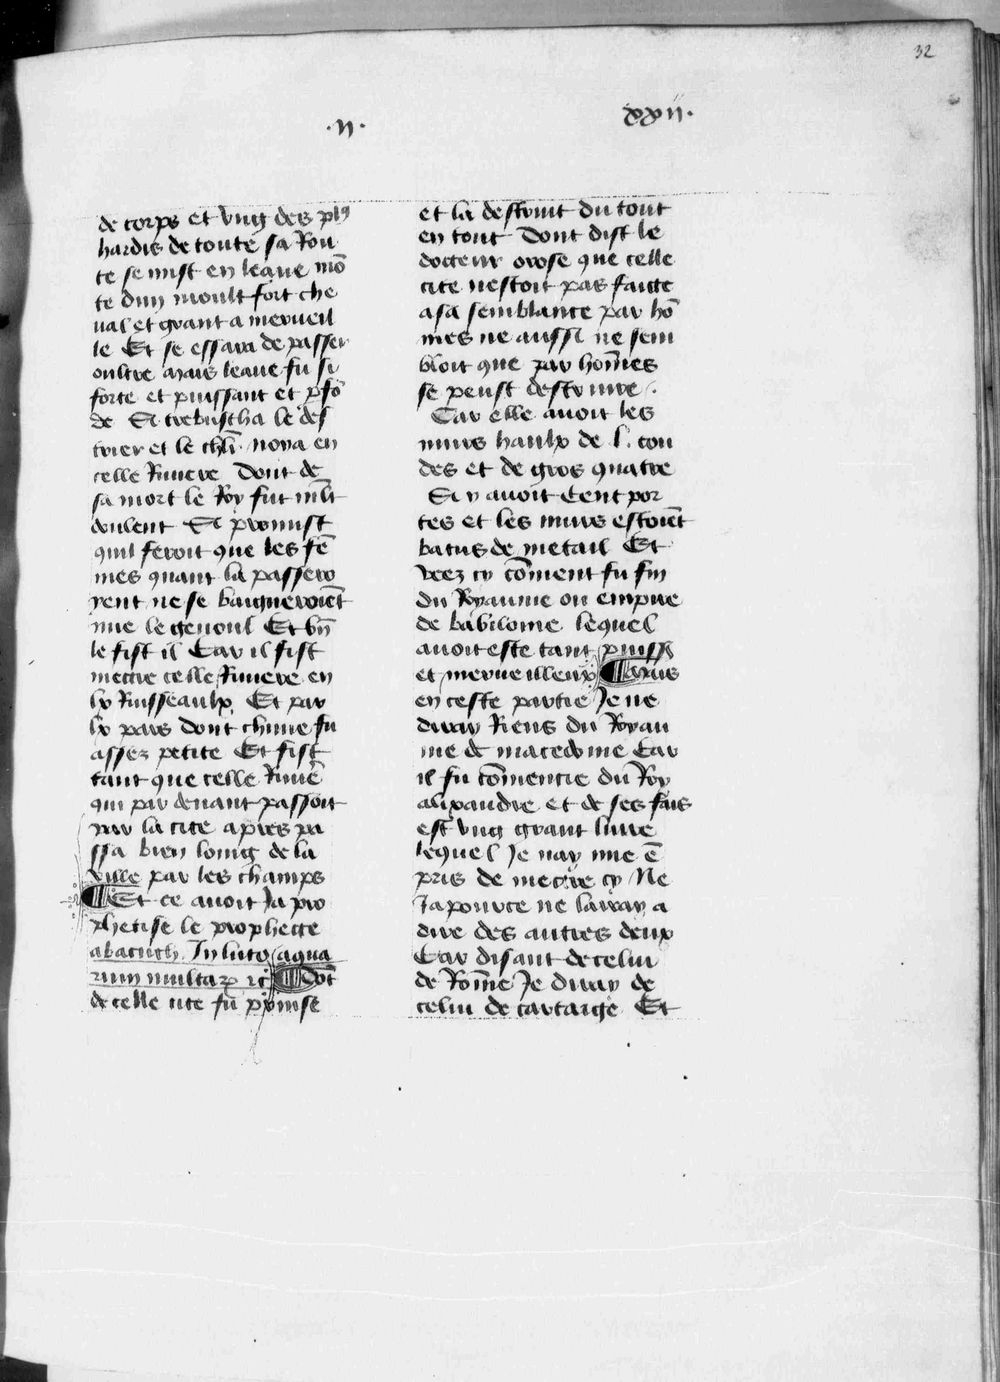 32
.II.
xxii.
de corps et vng des plꝰ
hardis de toute sa Rou
te se mist en leaue mõ
te dun moult fort che
ual et grant a merueil
le Et se essaia de passer
oultre Mais leaue fu si
forte et puissant et p̃fõ
de Si trebuscha le des
trier et le chl̃r noya en
celle Riuiere Dont de
sa mort le Roy fut ml̃t
doulent Si promist
quil feroit que les fẽ
mes quant la passero
rent ne se baigneroiẽt
mie le genoul Et bñ
le fist il Car il fist
mectre celle Riuiere en
lx Ruisseaulx Et par
lx pars dont chune fu
assez petite Et fist
tant que celle Riuie͂
qui par deuant passoit
par la cite apres pa
ssa bien loing de la
ville par les champs
Et ce auoit Ja pro
phetise le prophecte
abacuth. In luto aqua
rum multaꝝ ⁊c̃ Dõt
de celle cite fu p̃mise
et la destruit du tout
en tout Dont dist le
docteur orose que celle
cite nestoit pas faicte
a sa semblance par hõ
mes ne aussi ne sem
bloit que par hom̃es
se peust destruire .
Car elle auoit les
murs haulx de l. cou
des et de gros quatre
Si y auoit Cent por
tes et les murs estoiẽt
batus de metail Et
veez cy com̃ent fu fin
du Royaume ou empire
de babiloine lequel
auoit este tant puiss̃
et merueilleux Mais
en ceste partie Je ne
diray Riens du Royau
me de macedoine Car
il fu com̃encie du Roy
alixandre et de ses fais
est vng grant liure
lequel Je nay mie ẽ
pris de mectre cy Ne
Ja pource ne lairay a
dire des autres deux
Car disant de celui
de Rom̃e Je diray de
celui de cartaige Et